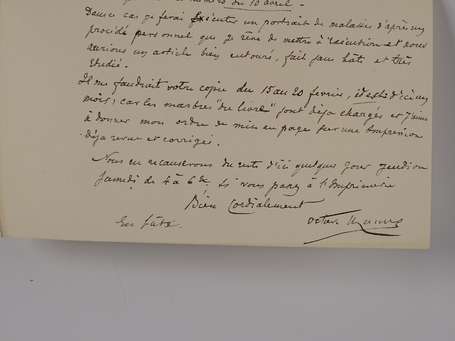 numéro du 10 avril.-
Dans ce cas je ferai exécuter un portrait de malassis d'après un
procédé personnel que je rêve de mettre à exécution et nous
aurions un article bien entouré, fait sans hâte et très
étudié.
Il me faudrait votre copie du 15 au 20 février, d'ici un
mois; car les marbres "du livre" sont déja chargés et j'aime
à donner mon ordre de mise en page sur une Impression
déja revue et corrigée.
Nous en recauserons du reste d'ici quelques jours jeudi ou
Samedi de 4 à 6 h. si vous passez à l'Imprimerie
Bien Cordialement
En hâte. Octave Uzanne